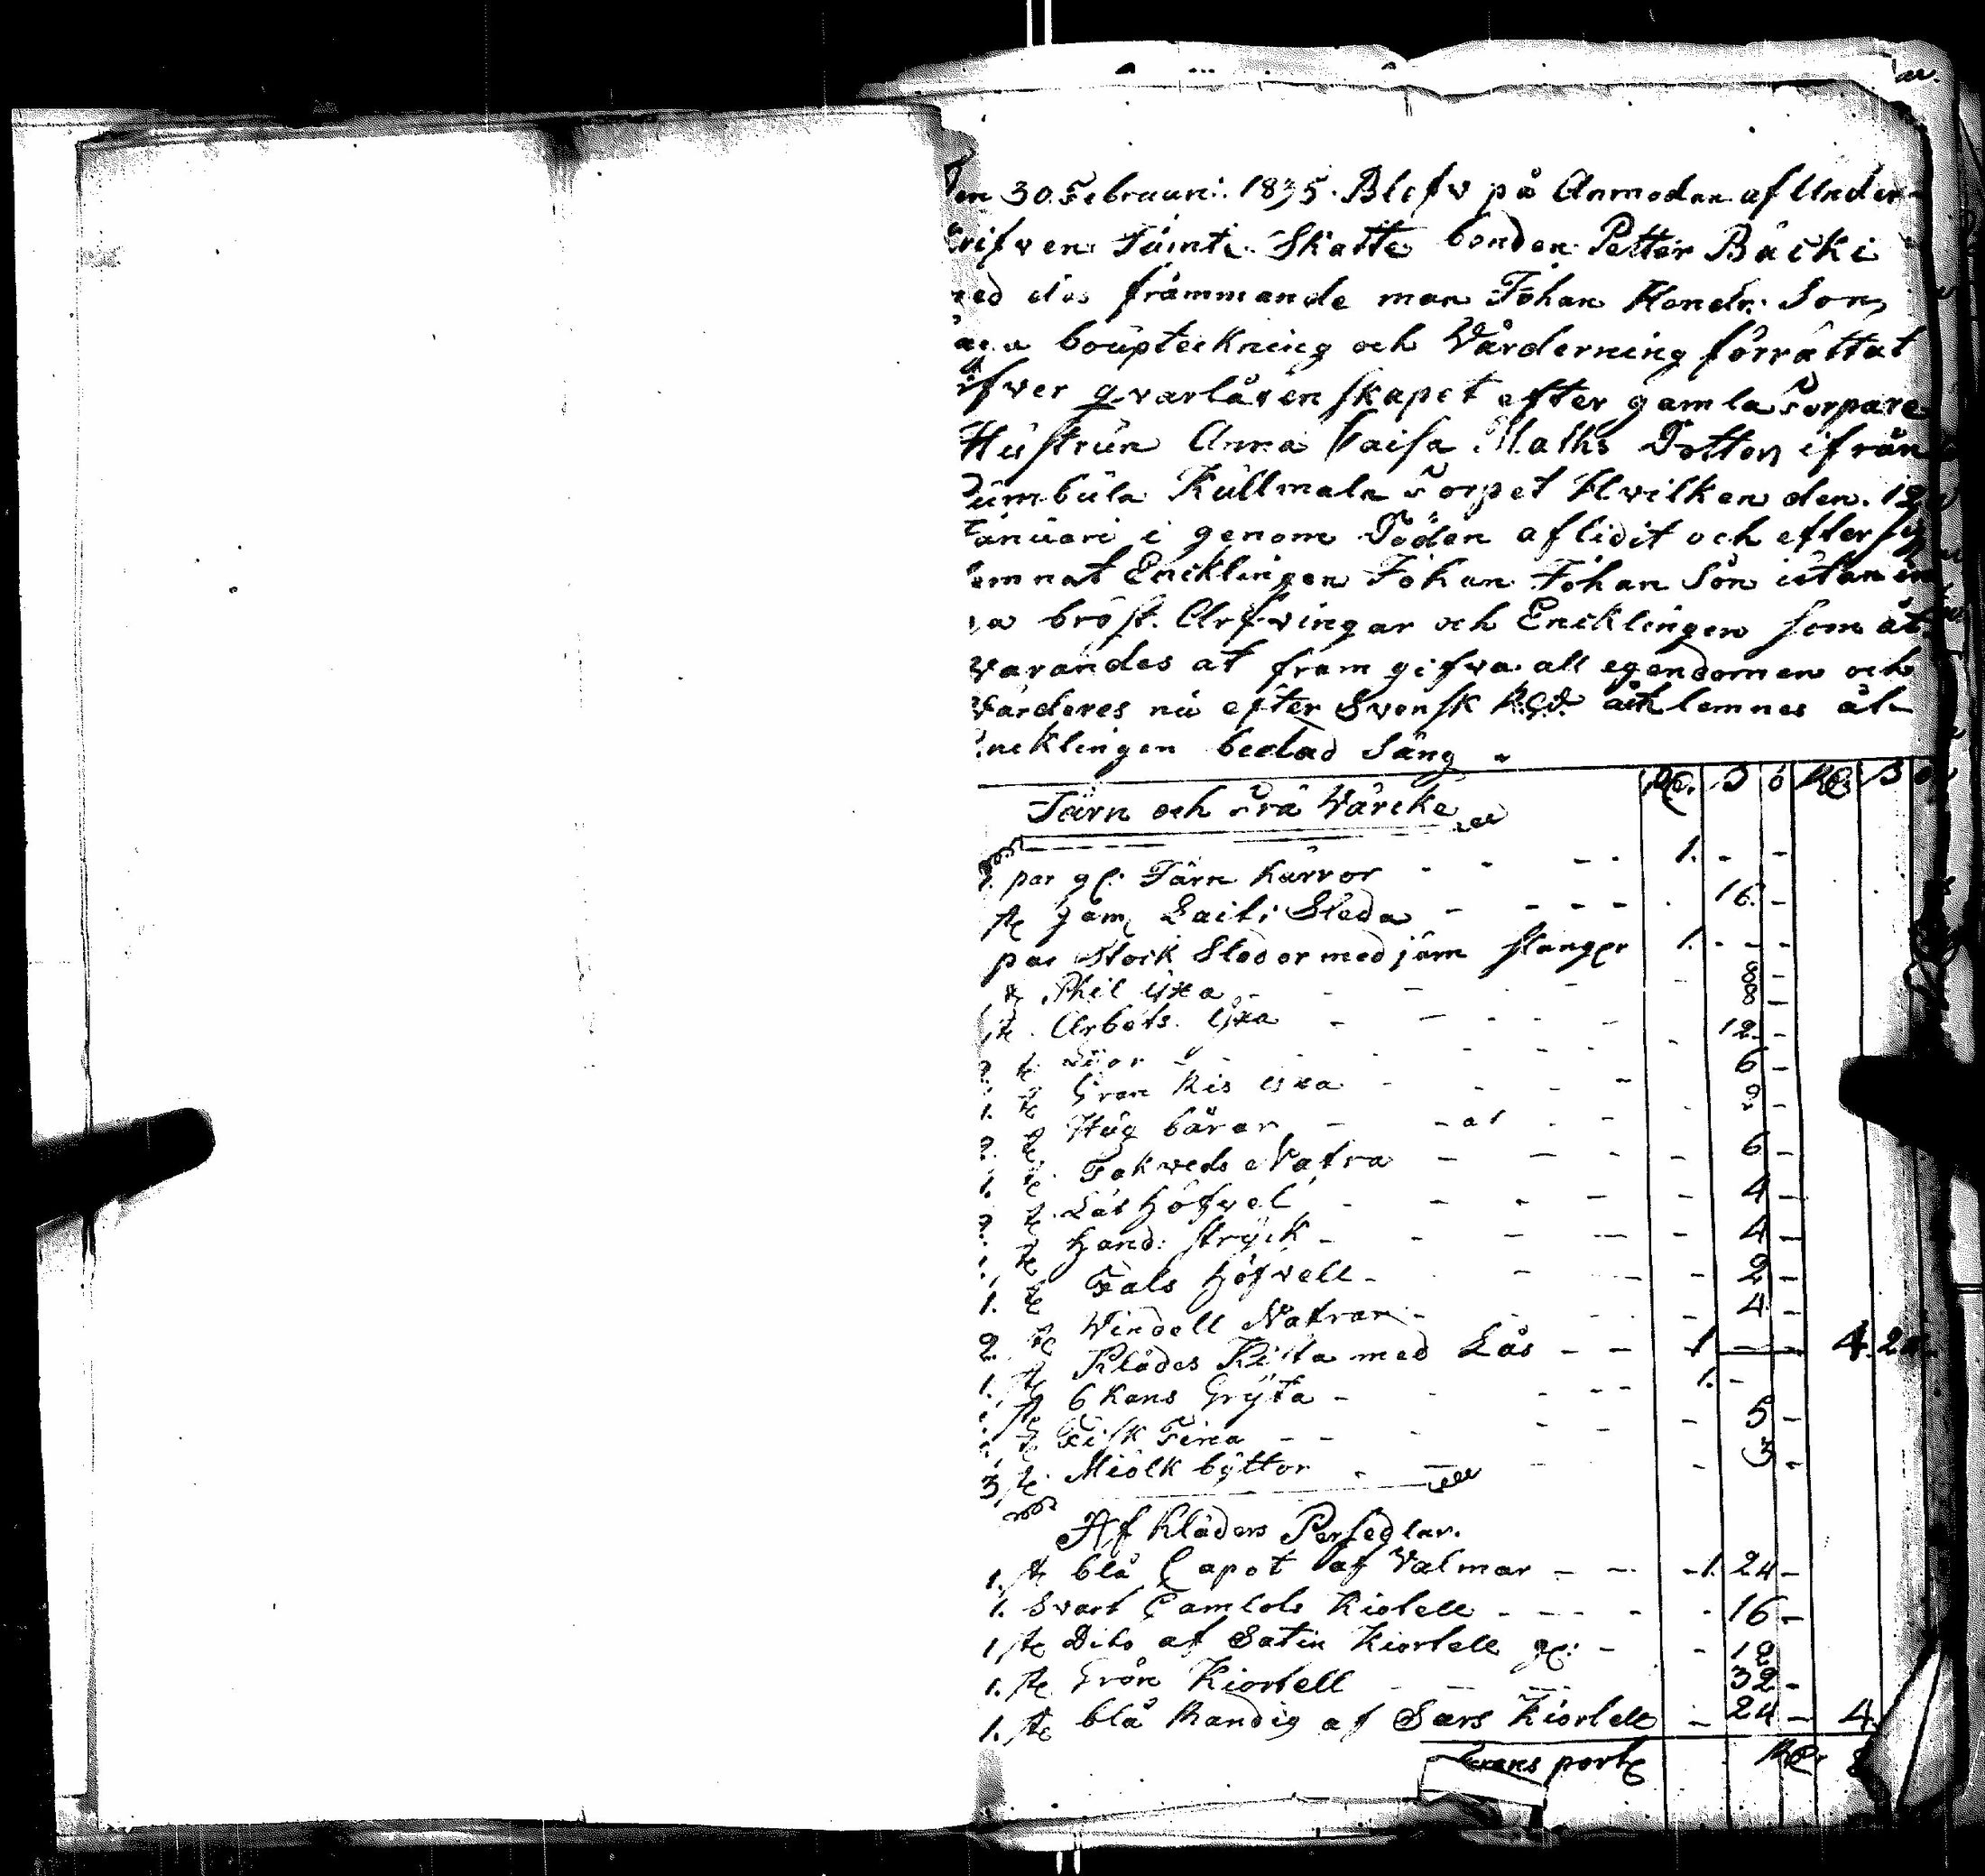 en 30. Februari: 1835. Blefv på Anmodan af Under-
rifven Jämte Skatte bonden Petter Bäcki
ed des främmande man Johan Hendr: Son,
boupteckning och Värderning förrättat
fver qvarlåtenskapet efter gamla Torpare
Hustrun Anna Caisa Maths Dotter ifrån
Kullmala Torpet Hvilken den. 12
anuari i genom Döden aflidit och efter sig
emnat Encklingen Johan Johan Son utan
a bröst. Arfvingar och Encklingen som åt
varandes at fram gifva all egendomen och
Värderes nu efter Svensk R:Gd. lemnes åt
ncklingen bedad Säng
Järn och Trä Värcke
Rd. S ö Rd. S
1. par gl: Järn kärror - - - 1. - -
st gam Sleda - - - - 16. -
par Stock Sledor med järn stänger 1. - - -
st yxa - - - 8 -
st. Arbets. yxa - - - 8 -
2. st Liior - - - 12. -
1. st Gran Ris yxa - - - 6 -
2. st Hug bårar - - - 2 -
1. st Nafra - - - 6 -
2. st Höfvel - - - 4 -
1. st hand: stryck - - - 4 -
1. st Fals höfvell - - - 2 -
2. st Windell Nafrar - - - 4 -
1. st Klädes Kista med Lås - - 1 - - 4. 2
1. st 6 kans Gryta - - - 1. -
1. st Fisk Tina - - - 5 -
3 st. Miölk byttor - - - 3 -
Af Kläders Persedlar.
1. st blå Capot af Valmar - - - 1. 24 -
1. Svart Camlots Kiortell - - - 16 -
1 st Dito af Satin Kiortell gl: - - 12
1. st Grön Kiortell - - 32 -
1. st blå Randig af Sars Kiortell - 24 - 4.
Transport Rd